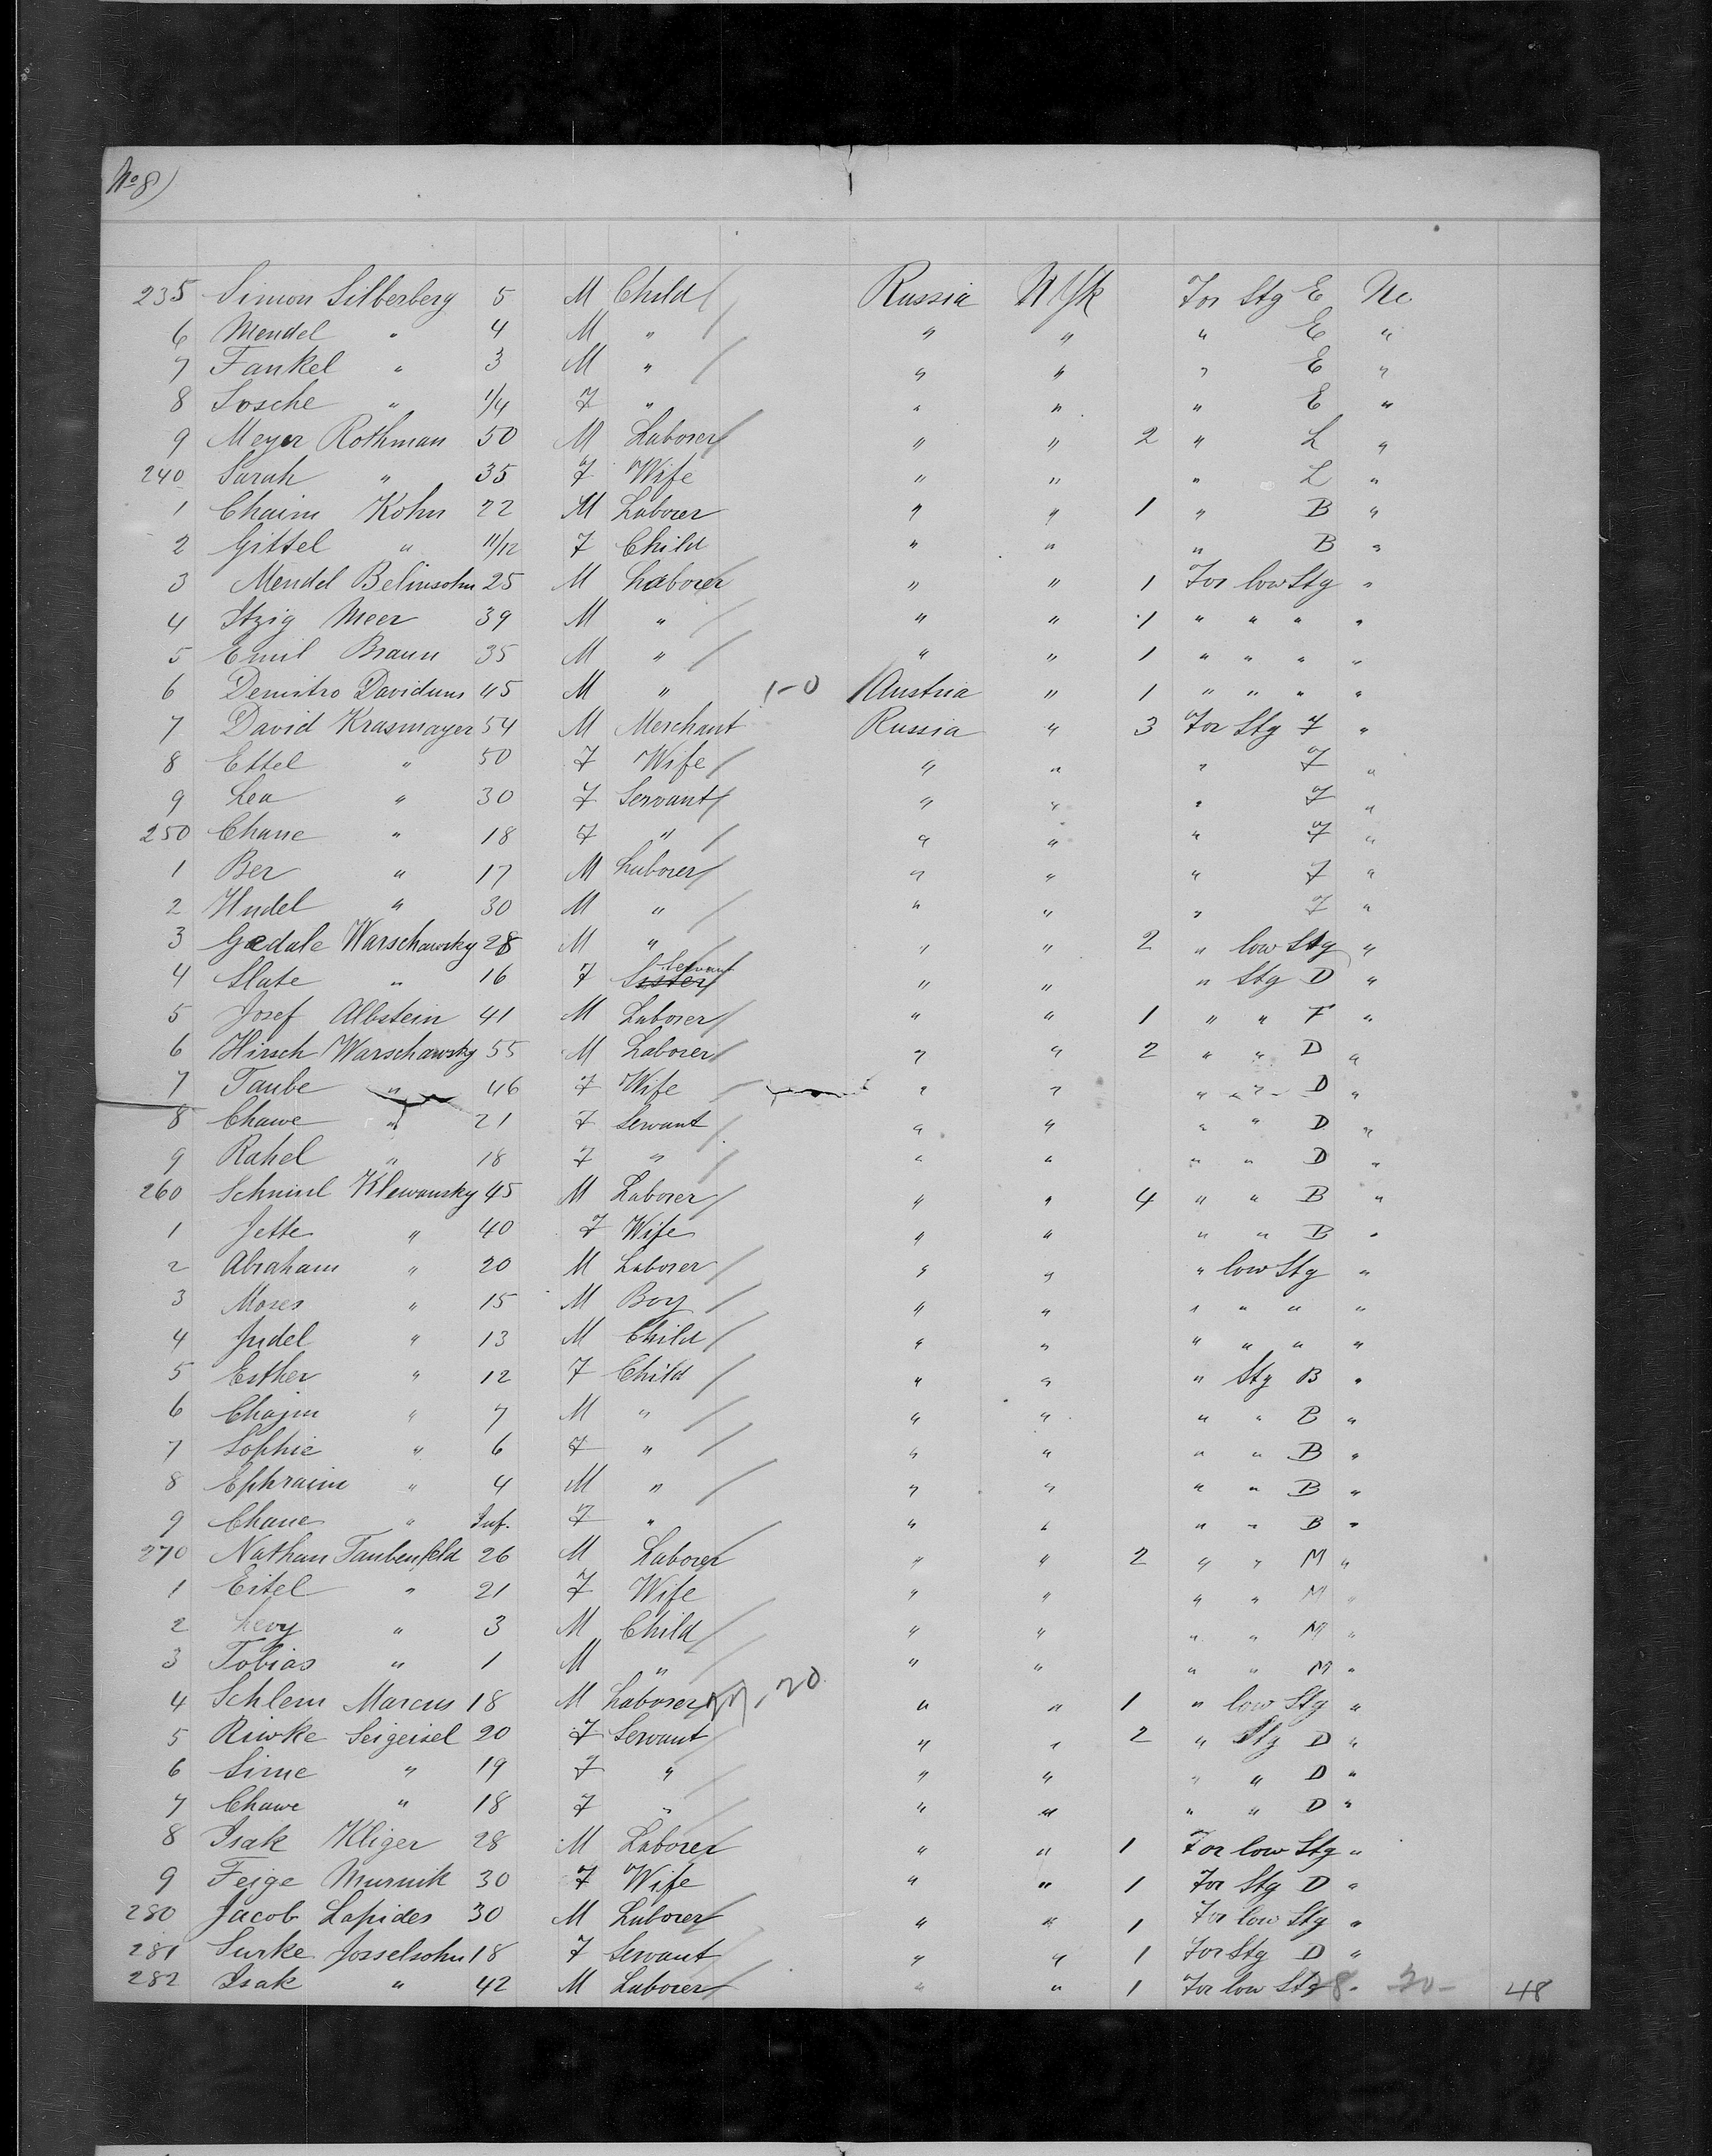 No 8)
235 Simon Silberberg 5 M Child Russia N Yk For Stg E No
6 Mendel " 4 M " " " " E "
7 Fankel " 3 M " " " " E "
8 Sosche " 1/4 F " " " " E "
9 Meyer Rothman 50 M Laborer " " 2 " L "
240 Sarah " 35 F Wife " " " L "
1 Chaim Kohn 22 M Laborer " " 1 " B "
2 Gittel " 11/12 F Child " " " B "
3 Mendel Belinsohn 25 M Laborer " " 1 For low Stg "
4 Itzig Meer 39 M " " " 1 " " " "
5 Emil Braun 35 M " " " 1 " " " "
6 Demitro Daviduns 45 M " 1-0 Austria " 1 " " " "
7 David Krasmayer 54 M Merchant Russia " 3 For Stg F "
8 Ettel " 50 F Wife " " " F "
9 Lea " 30 F Servant " " " F "
250 Chane " 18 F " " " " F "
1 Ber " 17 M Laborer " " " F "
2 Hudel " 30 M " " " " F "
3 Gedale Warschawsky 28 M " " " 2 " low Stg "
4 Slate " 16 F Sister Servant " " " Stg D "
5 Josef Albstein 41 M Laborer " " 1 " " F "
6 Hirsch Warschawsky 55 M Laborer " " 2 " " D "
7 Taube " 46 F Wife " " " " D "
8 Chawe " 21 F Servant " " " " D "
9 Rahel " 18 F " " " " " D "
260 Schmiel Klewansky 45 M Laborer " " 4 " " B "
1 Jette " 40 F Wife " " " " B "
2 Abraham " 20 M Laborer " " " low Stg "
3 Moses " 15 M Boy " " " " " "
4 Judel " 13 M Child " " " " " "
5 Esther " 12 F Child " " " Stg B "
6 Chajm " 7 M " " " " " B "
7 Sophie " 6 F " " " " " B "
8 Ephraim " 4 M " " " " " B "
9 Chane " Inf. F " " " " " B "
270 Nathan Taubenfeld 26 M Laborer " " 2 " " M "
1 Eitel " 21 F Wife " " " " M "
2 Levy " 3 M Child " " " " M "
3 Tobias " 1 M " " " " " M "
4 Schlem Marcus 18 M Laborer 20 " " 1 " low Stg "
5 Riwke Seigeisel 20 F Servant " " 2 " Stg D "
6 Sime " 19 F " " " " " D "
7 Chawe " 18 F " " " " " D "
8 Isak Kliger 28 M Laborer " " 1 For low Stg "
9 Feige Murnik 30 F Wife " " 1 For Stg D "
280 Jacob Lapides 30 M Laborer " " 1 For low Stg "
281 Surke Josselsohn 18 F Servant " " 1 For Stg D "
282 Isak " 42 M Laborer " " 1 For low Stg " 48